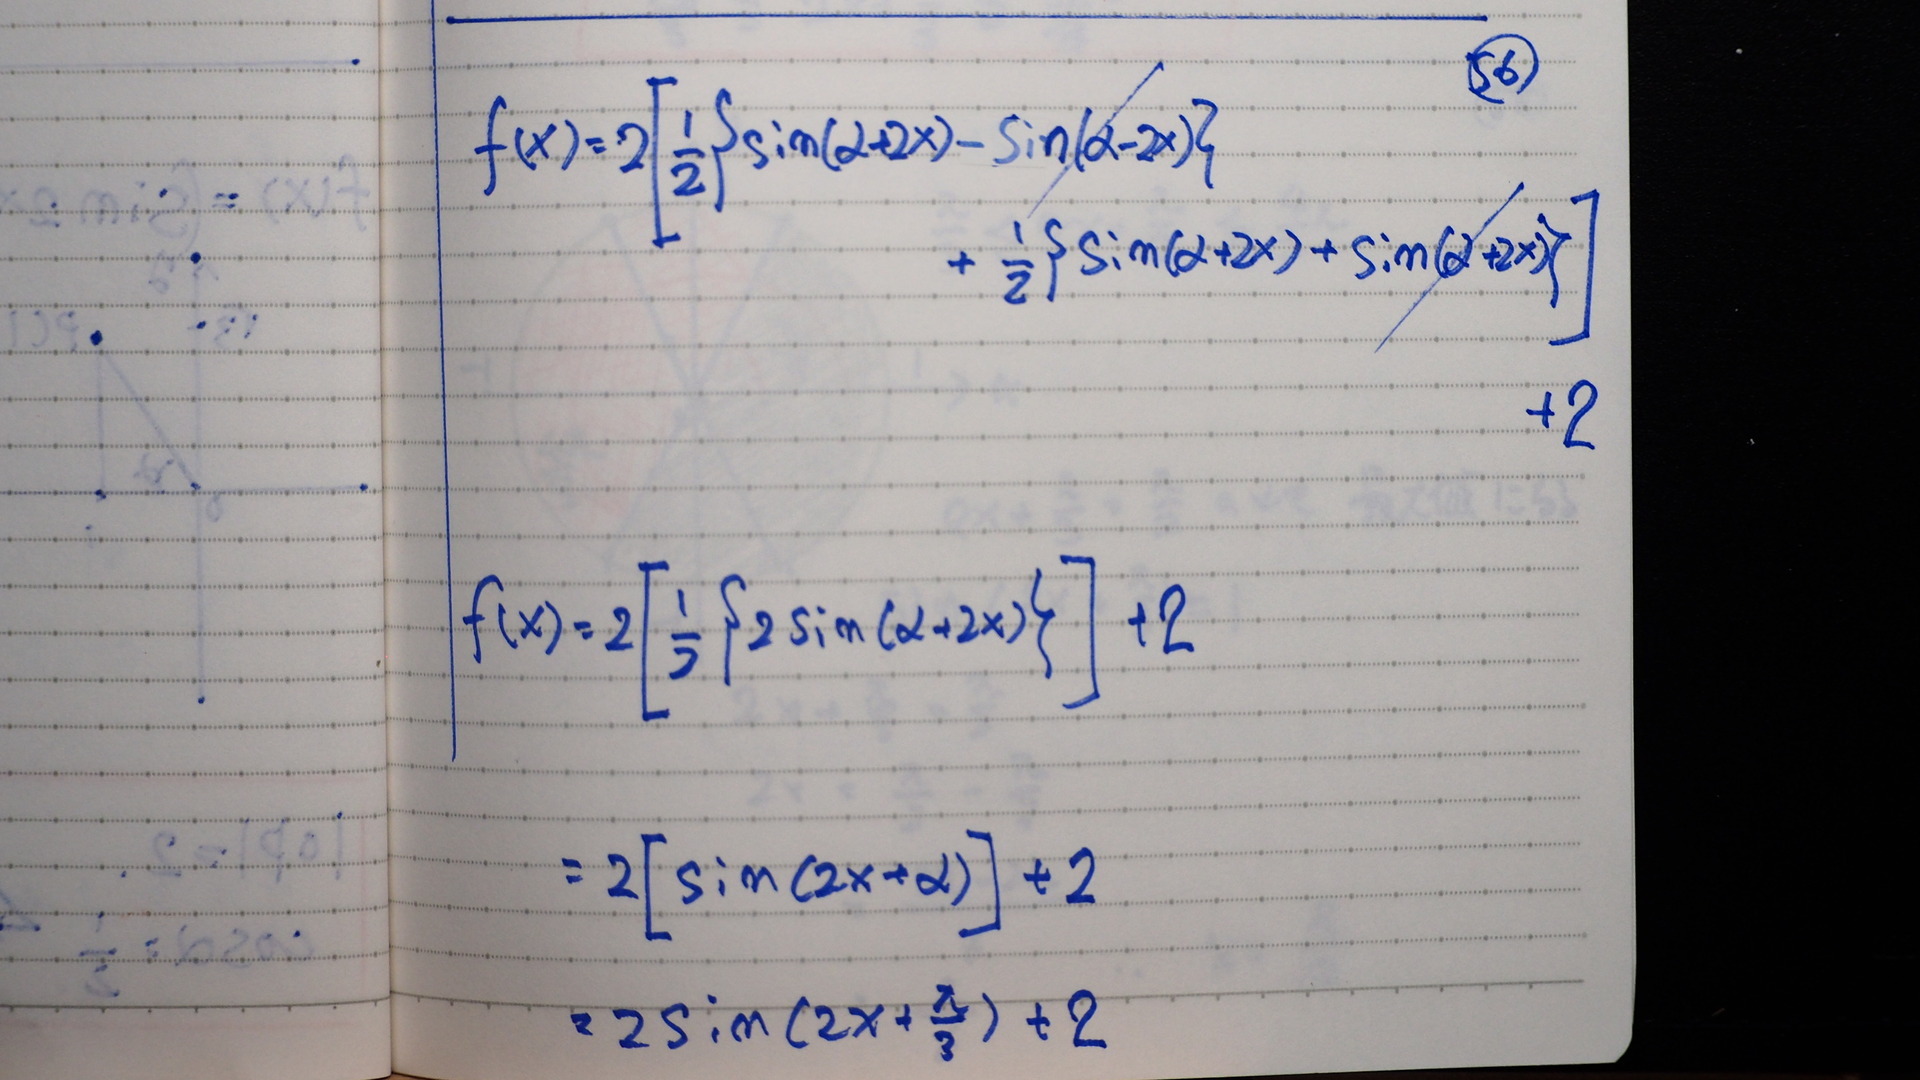 56
f(x)=2[1/2{sin(α+2x)-sin(α-2x)}
+1/2{sin(α+2x)+sin(α+2x)}]
+2
f(x)=2[1/2{2sin(α+2x)}]+2
=2[sin(2x+α)]+2
=2sin(2x+π/3)+2